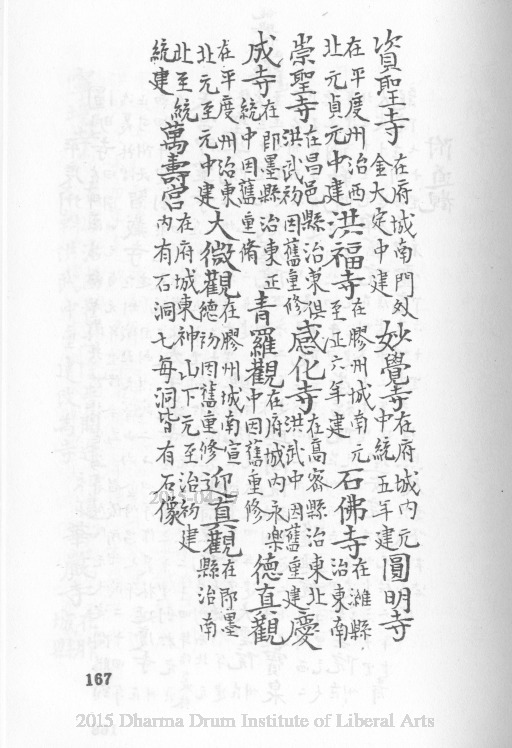 資聖寺在府城南門外金大定中建妙覺寺在府城內元中統五年建圓明寺
在平度州治西北元貞元中建洪福寺在膠州城南元至正六年建石佛寺在濰縣治東南
崇聖寺在昌邑縣治東俱洪武初因舊重修感化寺在高密縣治東北洪武中因舊重建慶
成寺在即墨縣治東正統中因舊重脩青羅觀在府城內永樂中因舊重修德真觀
在平度州治東北元至元中建大微觀在膠州城南宣德初因舊重修迎真觀在即墨縣治南
至統統建萬壽宮在府城東神山下元至治初建內有石洞七每洞皆有石像
167
2015 Dharma Drum Institute of Liberal Arts